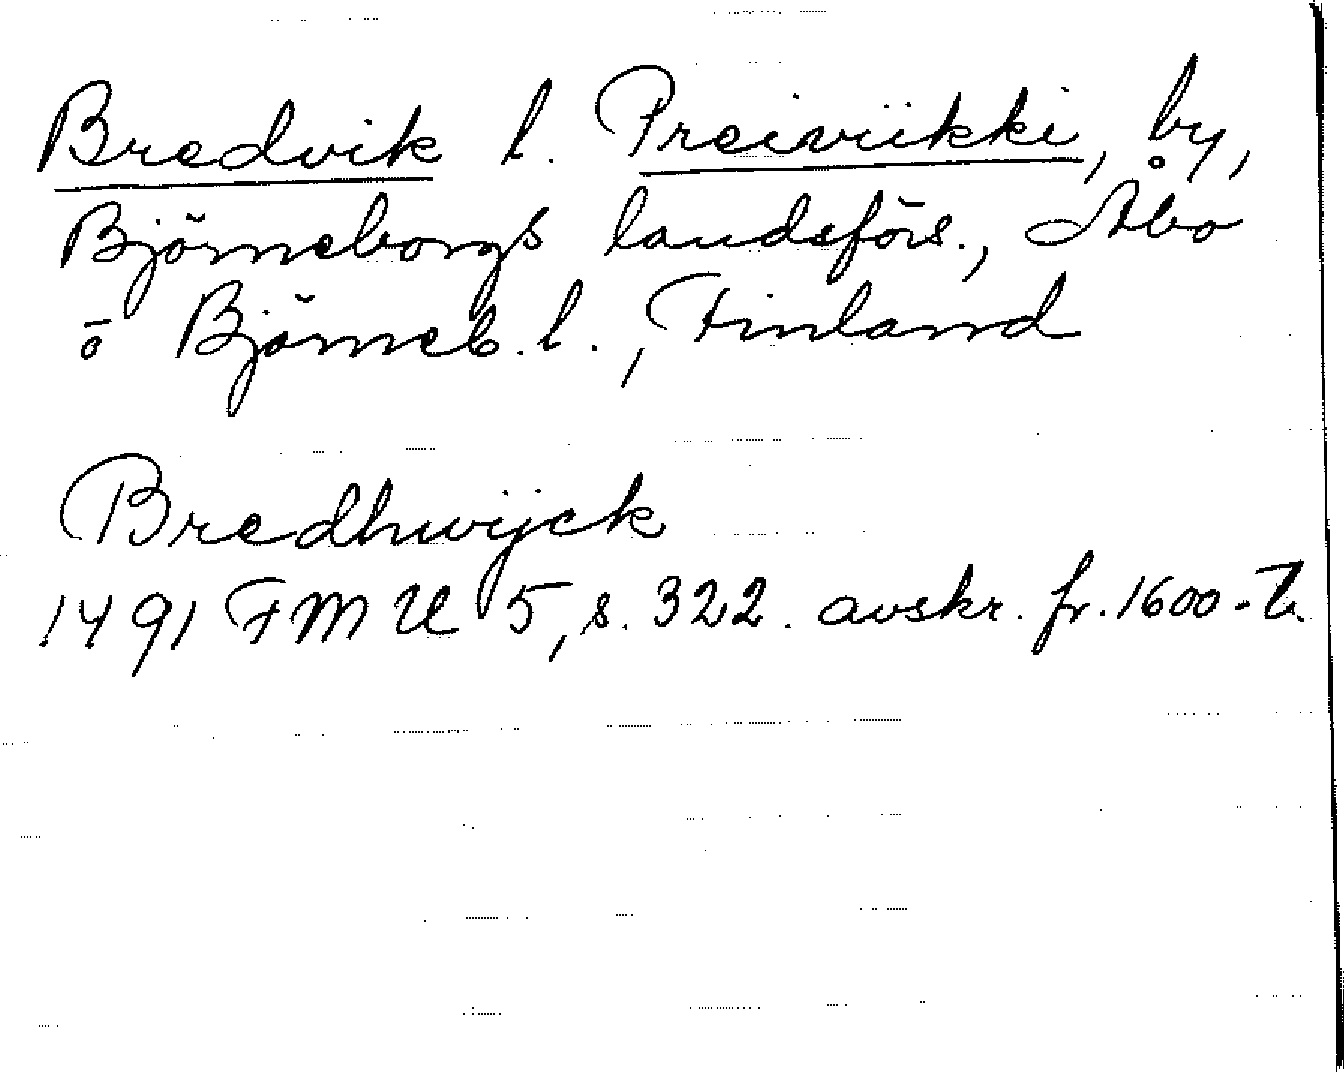 Bredvik l. Preiviikki, by,
Björneborgs landsförs., Åbo
o Björneb. l., Finland
Bredhwijck
1491 FMU 5, s. 322. avskr. fr. 1600-t.